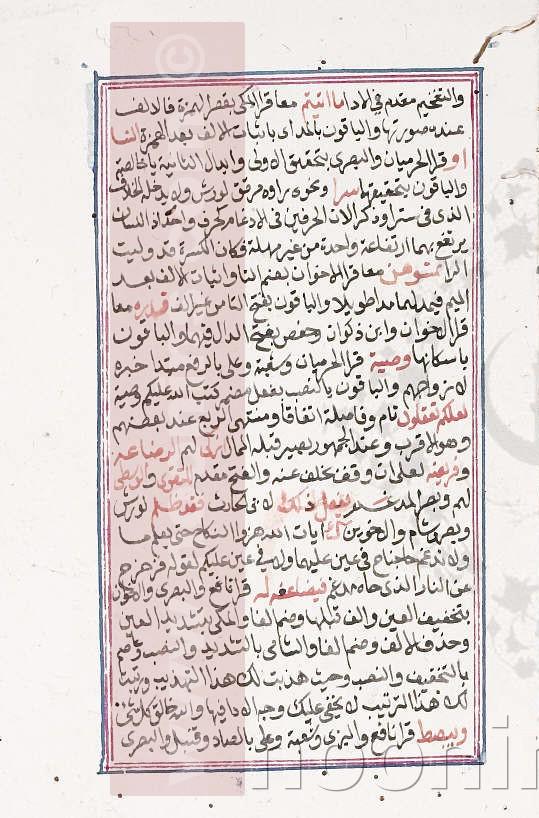 والتفخيم مقدم في الاداء ما اتيتم معا قرا المكي بقصر الهمزة فالالف
عنده صورتها والباقون بالمد اي باثبات الالف بعد الهمزة النسا
او قرا الحرميان والبصري بتحقيق الاولى وابدال الثانية ياء خالصة
والباقون بتحقيقهما سرا ونحوه راؤه مرقق لورش ولا يدخله الخلاف
الذي في سترا وذكرا لان الحرفين في الادغام كحرف واحد اذ اللسان
يرتفع بهما ارتفاعة واحدة من غير مهلة فكان الكسرة قد وليت
الرا تمسوهن معا قرا الاخوان بضم التا واثبات الالف بعد
الميم فيمد لهما مدا طويلا والباقون بفتح التا من غير الف قدره معا
قرا الاخوان وابن ذكوان وحفص بفتح الدال فيهما والباقون
باسكانها وصية قرا الحرميان وشعبة وعلي بالرفع مبتدا خبره
لازواجهم والباقون بالنصب بفعل مضمر كتب الله عليكم وصية
لعلكم تعقلون تام وفاصلة اتفاقا ومنتهى الربع عند بعضهم
وهو الاقرب وعند الجمهور بصير قبله الممال ازكى لهم الرضاعة
وفريضة لعلي ان وقف بخلف عنه والفتح مقدم للتقوى والوسطى
لهم وبصر المدغم يفعل ذلك لابي الحارث فقد ظلم لورش
وبصري وشام والاخوين ك ايات الله هزوا النكاح حتى يعلم ما
ولا ادغام في جناح في عين عليهما ولا في عين عليكم لقوله فزحزح
عن النار الذي حاه مدغم فيضاعفه له قرا نافع والبصري والاخوان
بتخفيف العين والف قبلها وضم الفا والمكي بتشديد العين
وحذف الالف وضم الفا والشامي بالتشديد والنصب وعاصم
بالتخفيف والنصب وحيث هذبت لك هذا التهذيب ورتبت
لك هذا الترتيب لا يخفى عليك وجه الاداء فيها والله خالق كل شي
ويبصط قرا نافع والبزي وشعبة وعلي بالصاد وقنبل والبصري
noorli